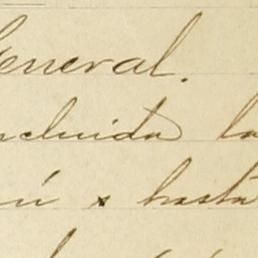 General.
ncluida la
ún x hasta